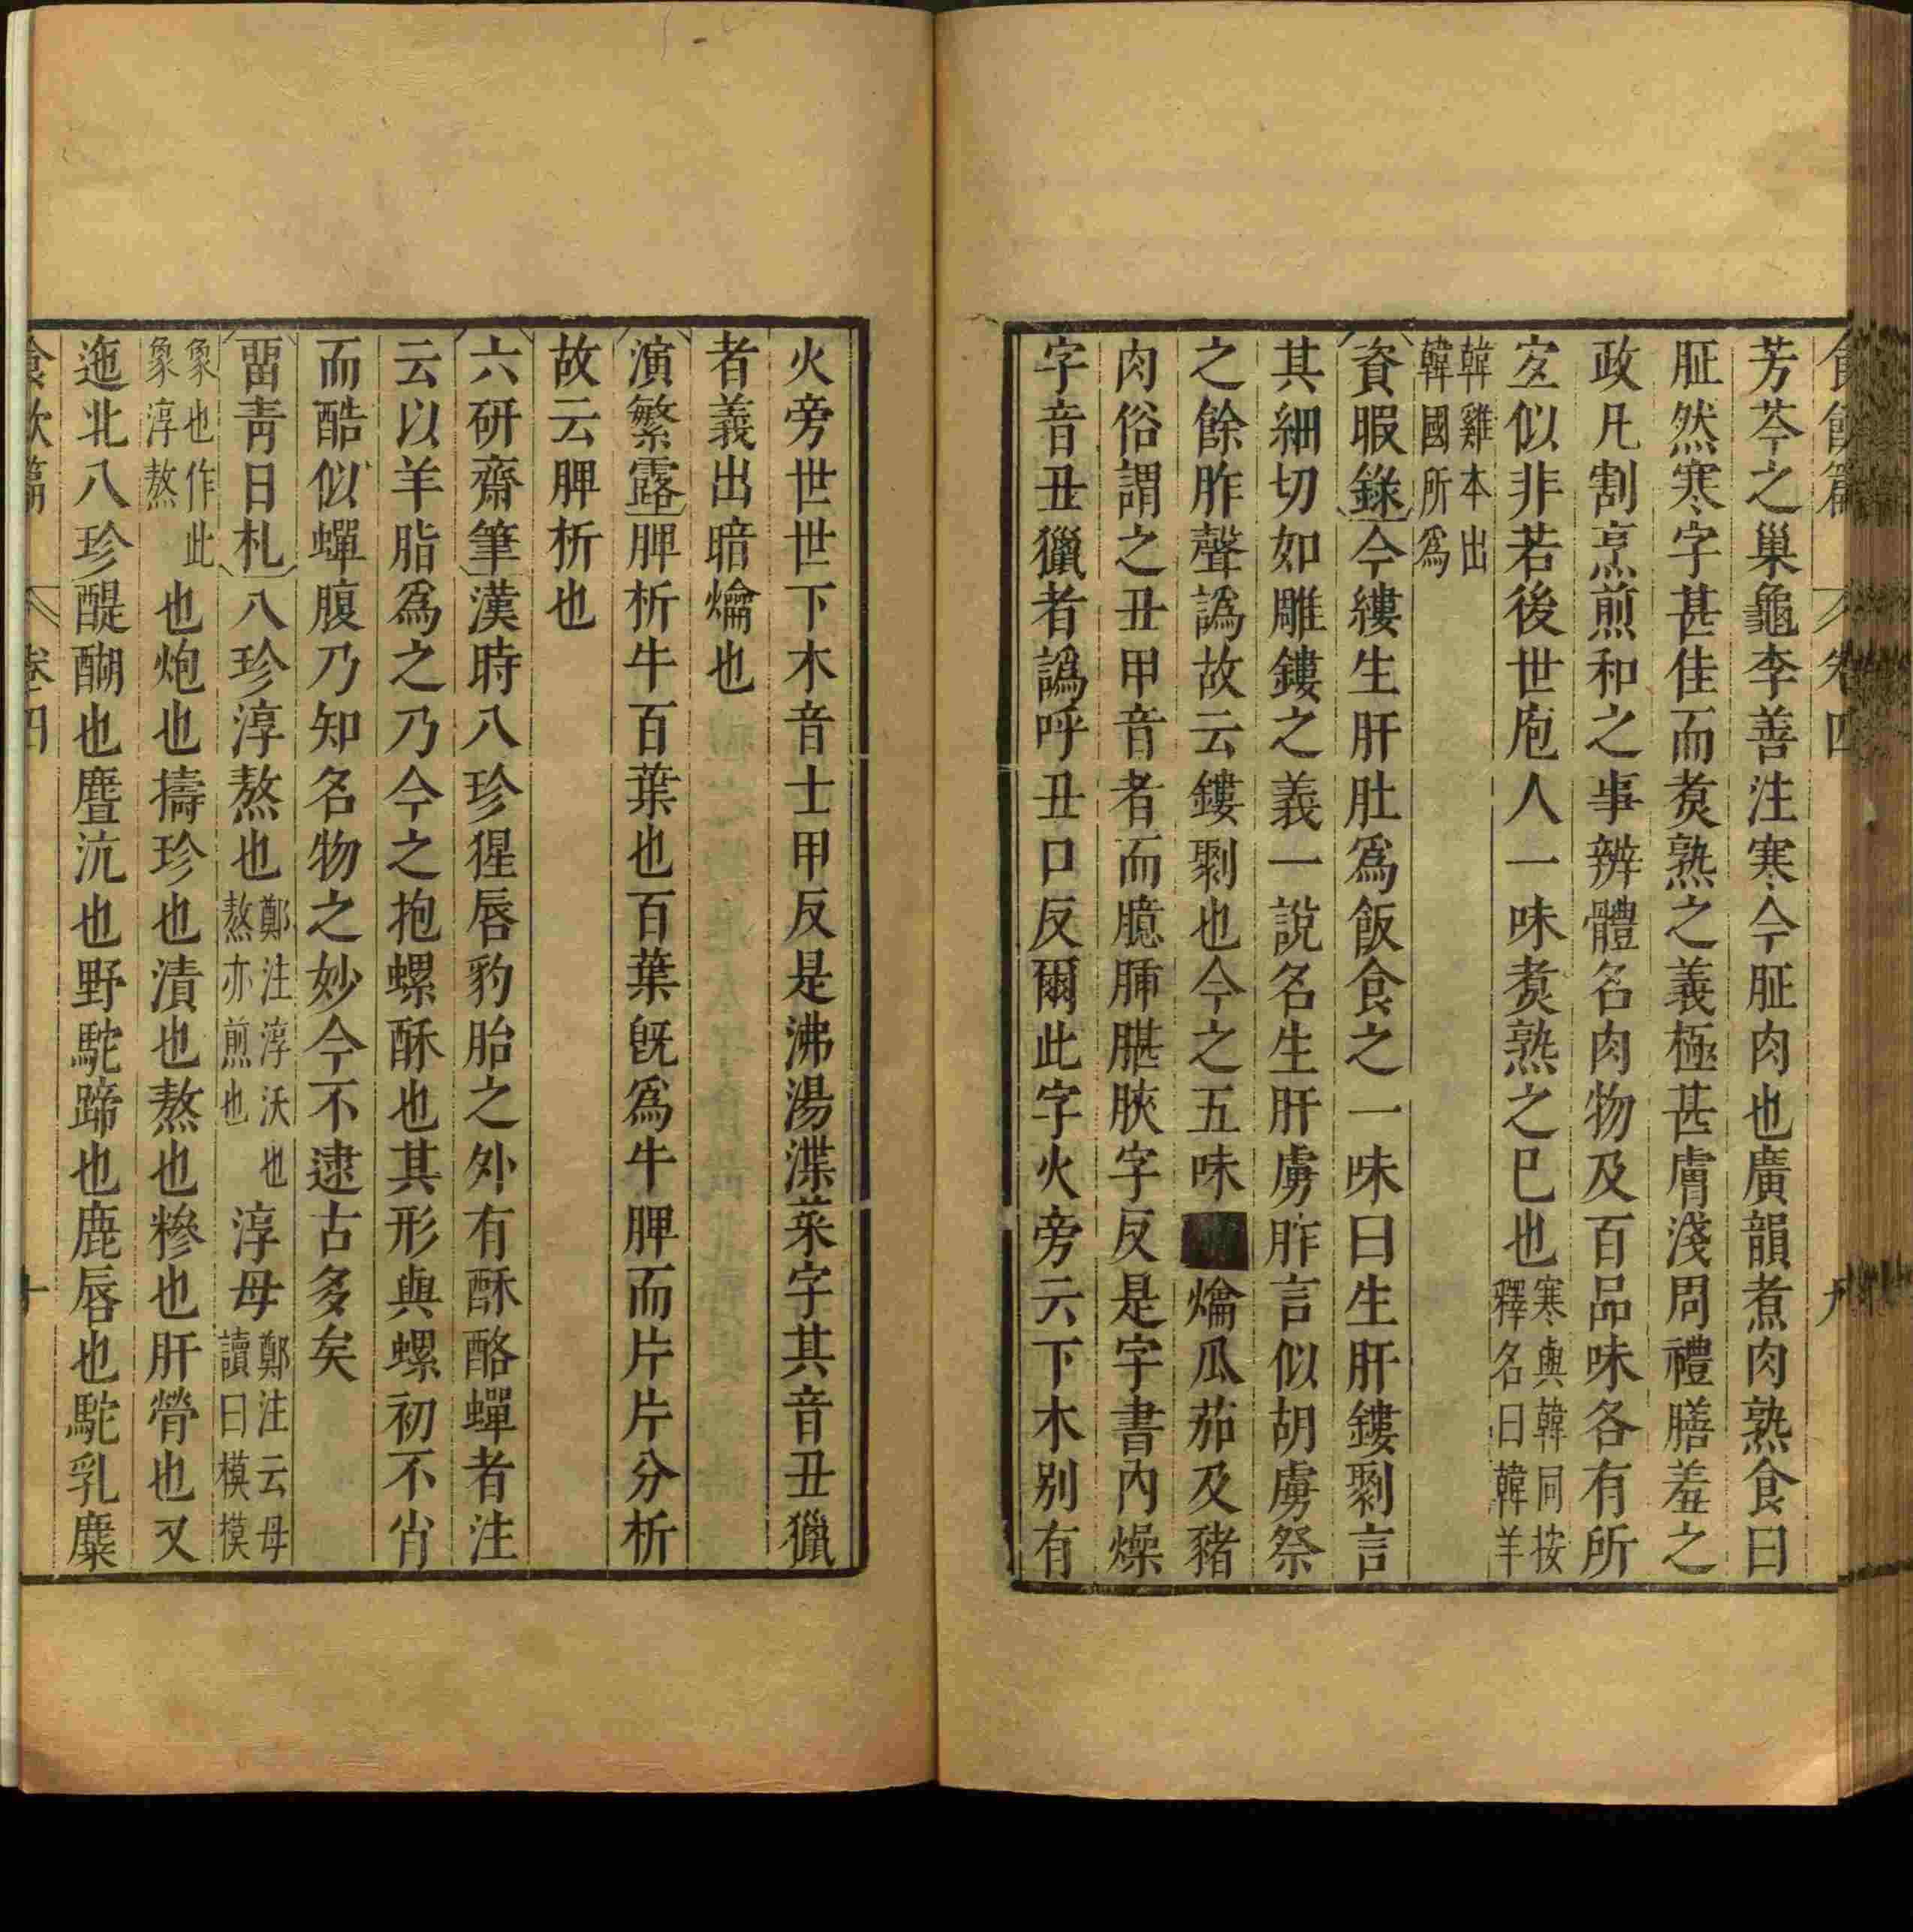 食飲篇 卷四 九
芳苓之巢龜李善注寒今胚肉也廣韻煮肉熟食曰
胚然寒字甚佳而煑熟之義極甚膚淺周禮膳羞之
政凡割烹煎和之事辨體名肉物及百品味各有所
宜似非若後世庖人一味煑熟之巳也寒與韓同按
釋名曰韓羊
韓雞本出
韓國所爲
資暇錄今縷生肝肚爲飯食之一味曰生肝鏤剩言
其細切如雕鏤之義一說名生肝虜胙言似胡虜祭
之餘胙聲譌故云鏤剩也今之五味爚瓜茄及豬
肉俗謂之丑甲音者而臆腪腊脥字反是字書內燥
字音丑獵者譌呼丑口反爾此字火旁云下木别有
火旁世世下木音士甲反是沸湯渫菜字其音丑獵
者義出暗爚也
演繁露脾析牛百葉也百葉旣爲牛脾而片片分析
故云脾析也
六研齋筆漢時八珍猩唇豹胎之外有酥酪蟬者注
云以羊脂爲之乃今之抱螺酥也其形與螺初不肖
而酷似蟬腹乃知名物之妙今不逮古多矣
畱青日札八珍淳熬也鄭注淳沃也
熬亦煎也淳母鄭注云母
讀曰模模
象也作此
象淳熬也炮也擣珍也漬也熬也糝也肝膋也又
迤北八珍醍醐也麆沆也野駝蹄也鹿唇也駝乳麋
食飲篇 卷四 十